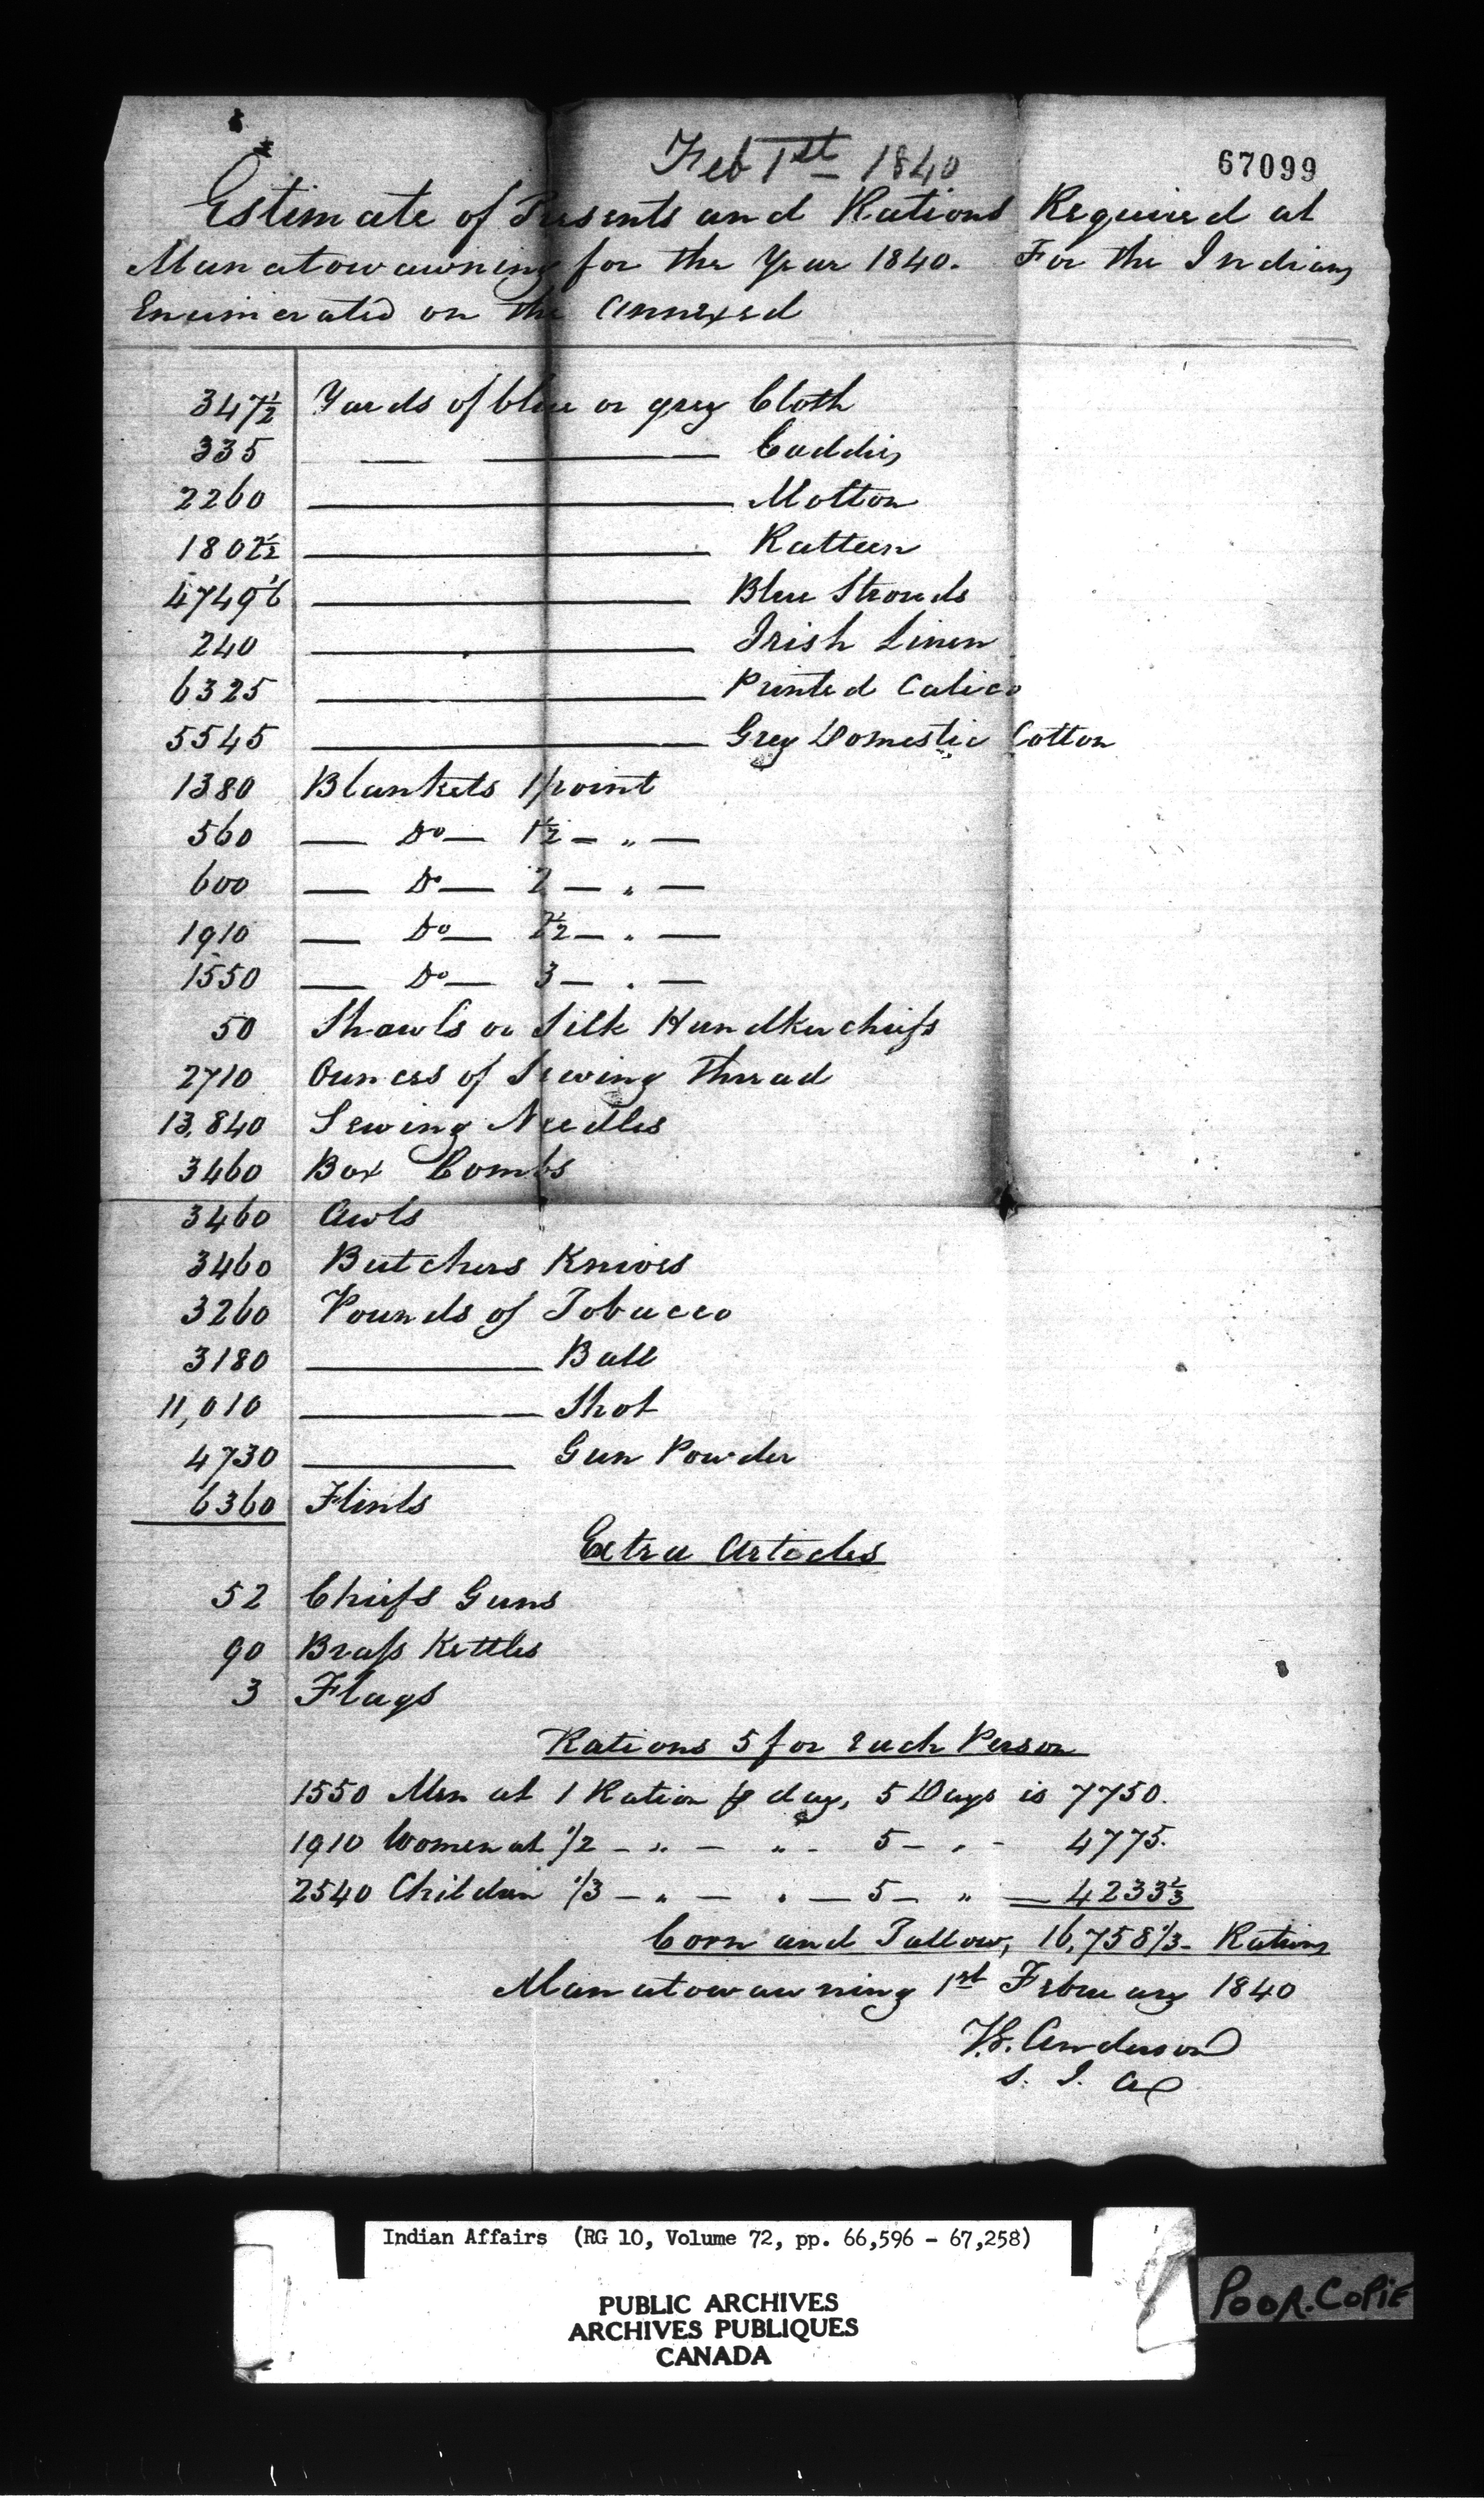 Feb 1st 1840
67099
Estimate of Presents and Rations Required at
Manatowawning for the Year 1840. For the Indians
Enumerated on the Annexed
347½ Yards of blue or grey Cloth
335 — — Caddis
2260 — Molton
1802½ — Ratteen
4749⅙ — Blue Strouds
240 — Irish Linen
6325 — Printed Calico
5545 — Grey Domestic Cotton
1380 Blankets 1 point
560 — Do — 1½ — „ —
600 — Do — 2 — „ —
1910 — Do — 2½ — „ —
1550 — Do — 3 — „ —
50 Shawls or Silk Handkerchiefs
2710 Ounces of Sewing Thread
13,840 Sewing Needles
3460 Box Combs
3460 Awls
3460 Butchers Knives
3260 Pounds of Tobacco
3180 — Ball
11,010 — Shot
4730 — Gun Powder
6360 Flints
Extra Articles
52 Chiefs Guns
90 Brass Kettles
3 Flags
Rations 5 for each Person
1550 Men at 1 Ration ⅌ day, 5 Days is 7750.
1910 Women at ½ — „ — „ - 5 — „ - 4775.
2540 Children ⅓ — „ — „ — 5 — „ — 4233⅓
Corn and Tallow, 16,758⅓ - Rations
Manatowawning 1st February 1840
T.G. Anderson
S. I. A
Indian Affairs (RG 10, Volume 72, pp. 66,596 - 67,258)
PUBLIC ARCHIVES
ARCHIVES PUBLIQUES
CANADA
POOR.COPIE